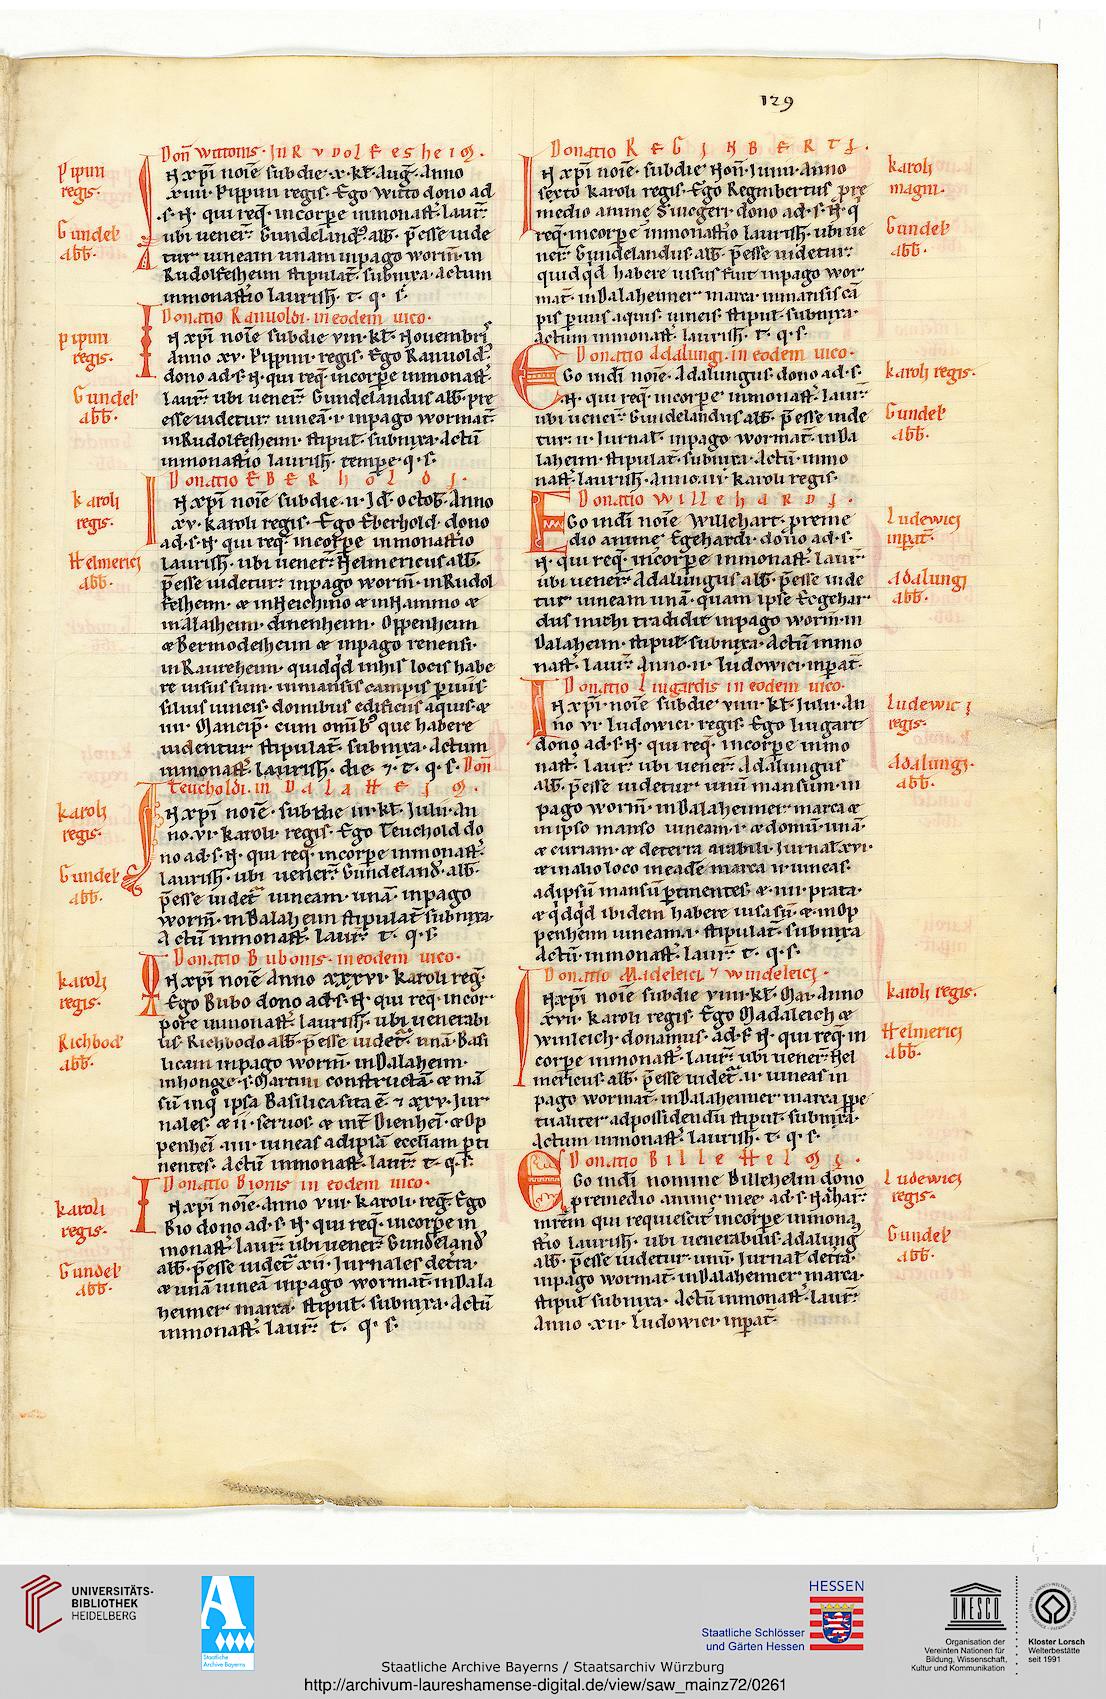 129
Don̄ wittonis· in RVDOLFESHEIM·
Pipini
regis·
N xp̄i noīe subdie·x·kl̄ Aug̅· Anno
xviii· Pippini regis· Ego Witto dono ad
·s·N· qui req̄· incorpe inmonast̄· laur̄·
Gundel̄
abb̄·
ubi uener̄· Gundeland9 abb̄· p̄esse uide
tur uineam unam inpago worm̄· in
Rudolfesheim stipulat̄· subnixa· actum
inmonast̄io laurish̄· t· q· s·
Donatio Ranuoldi· in eodem uico·
pipini
regis·
N xp̄i noīe subdie viii·kl̄· Nouembris
Anno xv· Pippini regis· Ego Ranuold9
dono ad·s·N· qui req̄ incorpe inmonast̄·
Gundel̄
abb̄·
laur̄· ubi uener̄· Gundelandus abb̄· pre
esse uidetur· uineā·i· inpago wormat̄·
inRudolfesheim· stipul̄· subnixa· actū
inmonast̄io laurish̄· tempe·q·s·
Donatio EBERHOLDI·
karoli
regis·
N xp̄i noīe subdie·ii·Id̄· octob̄· Anno
xv· karoli regis· Ego Eberhold· dono
ad·s·N· qui req̄· incorpe inmonast̄io
Helmericj
abb̄·
laurish̄· ubi uener̄· Helmericus abb̄·
p̄esse uidetur· inpago worm̄· inRudol
fesheim· & inHeichino & inHammo &
inAlasheim· dinenheim· Oppenheim
& Bermodesheim & inpago renensi·
inRaureheim· quidq̄d inhis locis habe
re uisus sum· inmansis campis p̄uiis·
siluis uineis· domibus edificiis aquis· &
iiii· Mancip̄· cum omib9 que habere
uidentur stipulat̄· subnixa· Actum
inmonast̄· laurish̄· die· 7·t· q· s· Don̄
Teucholdi· in DALAHEIM·
karolj
regis·
N xp̄i noīe· subdie iii·kl̄· Iulii· An
no·vi·karoli· regis· Ego Teuchold do
no ad·s·N· qui req̄· incorpe inmonast̄·
Gundel̄
abb̄·
laurish̄· ubi uener̄· Gundeland9· abb̄·
p̄esse uidet̄ uineam· unā· inpago
worm̄· inDalaheim stipulat̄ subnixa·
Actū inmonast̄· laur̄· t· q· s·
Donatio Bubonis· in eodem uico·
karolj
regis·
N xp̄i noīe Anno xxxvi· karoli reg̅·
Ego Bubo dono ad·s·N· qui req̄· incor
pore inmonast̄· laurish̄· ubi uenerabi
Richbod9
abb̄·
lis· Richbodo abb̄· p̄esse uidet̄· unā· Basi
licam inpago worm̄· inDalaheim·
inhonore·s·Martini constructā· & mā
sū inq̄ ipsa Basilica sita ē· 7 xxv· Jur
nales· & ii· seruos· & int̄ Dienhei· & Op
penhei· iiii· uineas adipsā eccliam pti
nentes· Actū inmonast̄· laur̄· t· q· s·
Donatio Bionis in eodem uico·
karoli
regis·
N xp̄i noīe· anno viii· karoli· reg̅· Ego
Bio dono ad·s·N· qui req̄· incorpe in
monast̄· laur̄· ubi uener̄· Gundeland9
Gundel̄
abb̄·
abb̄· p̄esse uidet̄ xii· Jurnales det̄ra·
& unā uineā inpago wormat̄· inDala
heimer· marca· stipul̄· subnixa· Actū
inmonast̄· laur̄· t· q· s·
Donatio REGINBERTI·
karolj
magni·
N xp̄i noīe· subdie Non̄· Iunii· Anno
sexto karoli regis· Ego Reginbertus pre
medio anime Sinegeri· dono ad·s·N·q̄
Gundel̄
abb̄·
req̄· incorpe inmonast̄io laurish̄· ubi ue
ner̄· Gundelandus abb̄· p̄esse uidetur·
quidq̄d habere uisus fuit inpago wor
mat̄· inDalaheimer marca· inmansis cā
pis p̄uiis aquis· uineis· stipul̄· subnixa·
actum inmonast̄· laurish̄· t· q· s·
Donatio Adalungi· in eodem uico·
karolj regis·
Ego indī noīe· Adalungus· dono ad·s·
N· qui req̄· incorpe inmonast̄· laur̄·
Gundel̄
abb̄·
ubi uener̄· Gundelandus abb̄· p̄esse uide
tur· ii· Iurnal̄· inpago wormat̄· inDa
laheim· stipulat̄· subnixa· Actū· inmo
nast̄· laurish̄· Anno·iii· karoli regis·
Donatio WILLEHARDI·
Ludewicj
inpat̄·
Ego indī noīe Willehart· preme
dio anime Egehardi· dono ad·s·
N· qui req̄· incorpe inmonast̄· laur̄·
Adalungj
abb̄·
ubi uener̄· Adalungus abb̄· p̄esse uide
tur uineam unā· quam ipse Ecgehar
dus michi tradidit inpago worm̄· in
Dalaheim· stipul̄· subnixa· Actū inmo
nast̄· laur̄· Anno·ii· ludowici inpat̄·
Donatio Liugardis in eodem uico·
Ludewicj
regis·
N xp̄i noīe subdie viiii·kl̄· Iulii· An
no vi· ludowici regis· Ego liugart
dono ad·s·N· qui req̄· incorpe inmo
Adalungj·
abb̄·
nast̄· laur̄· ubi uener̄· Adalungus
abb̄· p̄esse uidetur unū mansum· in
pago worm̄· inDalaheimer marca &
in ipso manso uineam·i· & domū· unā·
& curiam· & deterra arabili Jurnal̄·xvi·
& inalio loco ineadē marca ii· uineas·
adipsū mansū p̄tinentes· & iiii· prata·
& q̄dq̄d ibidem habere uisa sū· & inOp
penheim uineam·i· stipulat̄· subnixa
Actū· inmonast̄· laur̄· t· q· s·
Donatio Madelrici 7 windeleicj·
karolj regis·
N xp̄i noīe subdie viiii·kl̄· Mai· Anno
xvii· karoli regis· Ego Madaleich &
Helmericj
abb̄·
winleich· donamus· ad·s·N· qui req̄· in
corpe inmonast̄· laur̄· ubi uener̄· Hel
mericus abb̄· p̄esse uidet̄·ii· uineas in
pago wormat̄· inDalaheimer marca ppe
tualiter adpossidendū stipul̄· subnixa·
Actum inmonast̄· laurish̄· t· q· s·
Donatio BILLEHELMI·
Ludewicj
regis·
Ego indī nomine Billehelm dono
premedio anime mee· ad·s·Nahar̄·
mrēm qui requiescit incorpe inmona
Gundel̄
abb̄·
st̄io laurish̄· ubi uenerabilis· Adalung9
abb̄· p̄esse uidetur· unū· Jurnal̄ det̄ra·
inpago wormat̄· inDalaheimer· marca·
stipul̄ subnixa· Actū inmonast̄· laur̄·
Anno ·xii· ludowici inpat̄·
UNIVERSITÄTS-
BIBLIOTHEK
HEIDELBERG
Staatliche
Archive Bayerns
HESSEN
Staatliche Schlösser
und Gärten Hessen
UNESCO
Organisation der
Vereinten Nationen für
Bildung, Wissenschaft,
Kultur und Kommunikation
Kloster Lorsch
Welterbestätte
seit 1991
Staatliche Archive Bayerns / Staatsarchiv Würzburg
http://archivum-laureshamense-digital.de/view/saw_mainz72/0261